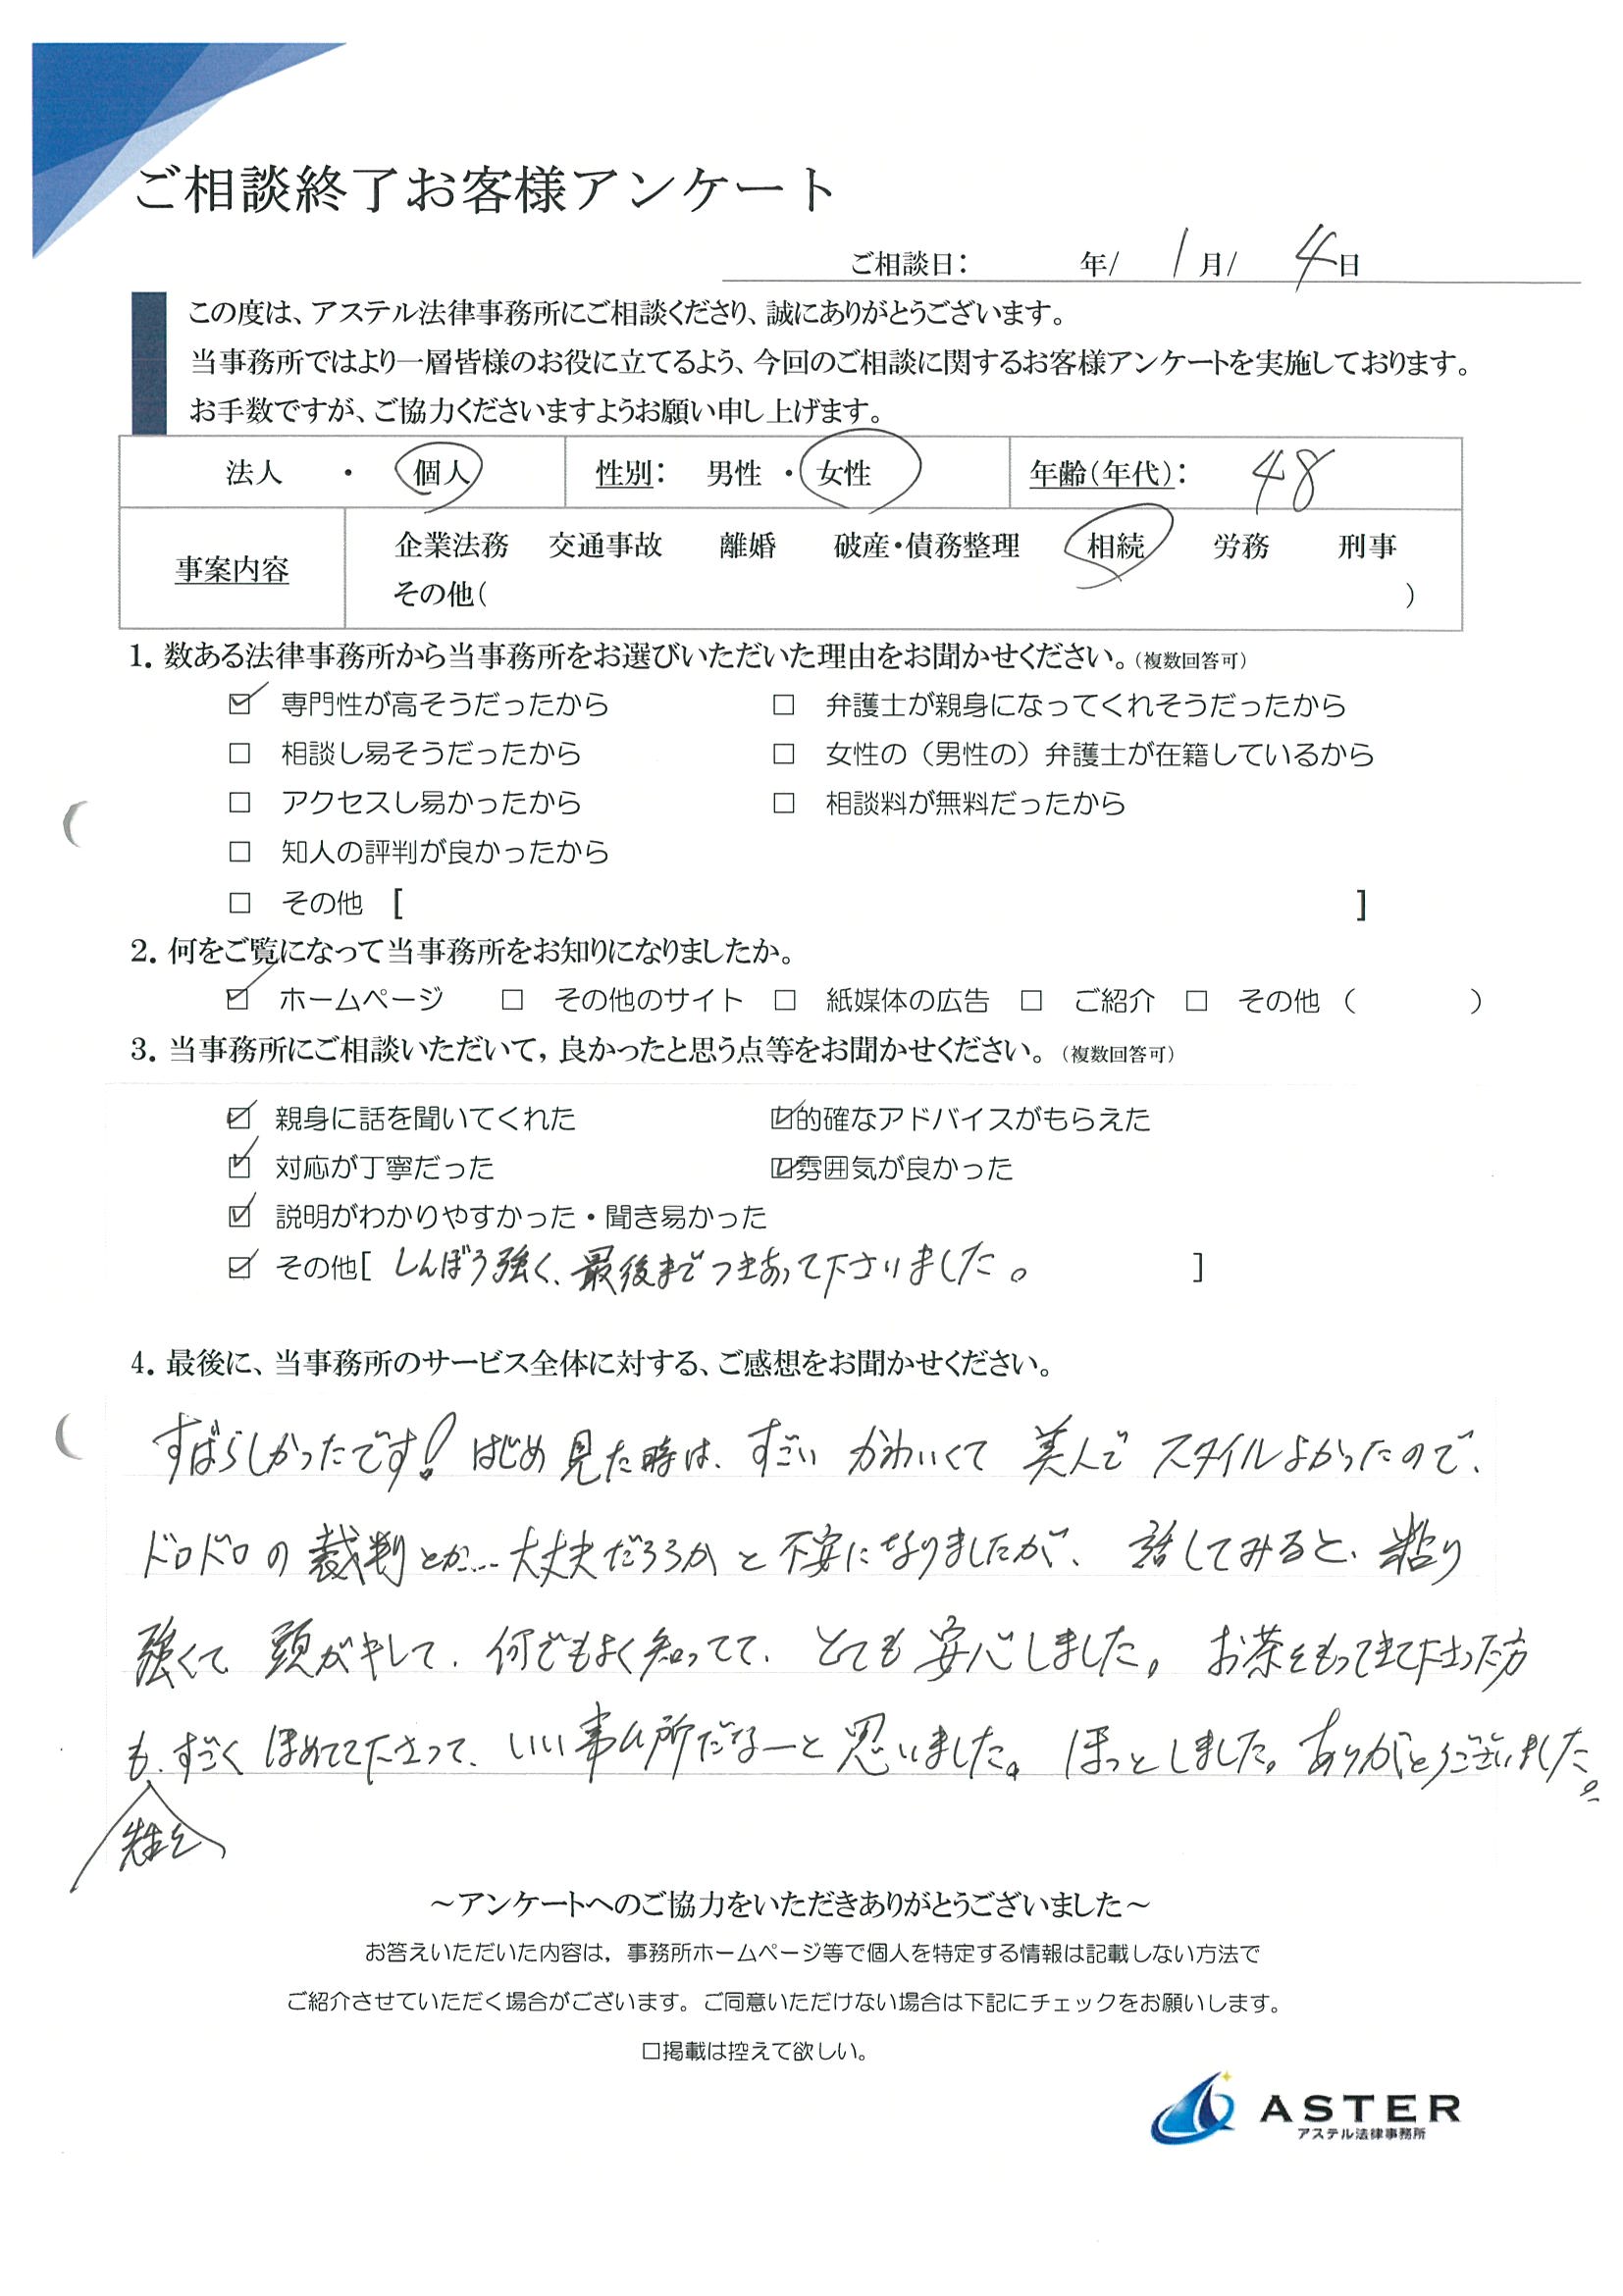 ご相談終了お客様アンケート
ご相談日： 年/ 1月/ 4日
この度は、アステル法律事務所にご相談くださり、誠にありがとうございます。
当事務所ではより一層皆様のお役に立てるよう、今回のご相談に関するお客様アンケートを実施しております。
お手数ですが、ご協力くださいますようお願い申し上げます。
法人 ・ 個人 性別： 男性 ・ 女性 年齢（年代）： 48
事案内容 企業法務 交通事故 離婚 破産・債務整理 相続 労務 刑事
その他（ ）
1. 数ある法律事務所から当事務所をお選びいただいた理由をお聞かせください。（複数回答可）
☑ 専門性が高そうだったから □ 弁護士が親身になってくれそうだったから
□ 相談し易そうだったから □ 女性の（男性の）弁護士が在籍しているから
□ アクセスし易かったから □ 相談料が無料だったから
□ 知人の評判が良かったから
□ その他 [ ]
2. 何をご覧になって当事務所をお知りになりましたか。
☑ ホームページ □ その他のサイト □ 紙媒体の広告 □ ご紹介 □ その他 （ ）
3. 当事務所にご相談いただいて，良かったと思う点等をお聞かせください。（複数回答可）
☑ 親身に話を聞いてくれた ☑的確なアドバイスがもらえた
☑ 対応が丁寧だった ☑雰囲気が良かった
☑ 説明がわかりやすかった・聞き易かった
☑ その他[ しんぼう強く、最後までつきあって下さりました。 ]
4. 最後に、当事務所のサービス全体に対する、ご感想をお聞かせください。
すばらしかったです！はじめ見た時は、すごい かわいくて 美人で スタイルよかったので、
ドロドロの裁判とか…大丈夫だろうかと不安になりましたが、話してみると、粘り
強くて 頭がキレて、何でもよく知ってて、とても安心しました。お茶をもってきて下さった方
も、すごく ほめてて下さって、いい事ム所だなーと思いました。ほっとしました。ありがとうございました。
先生を
～アンケートへのご協力をいただきありがとうございました～
お答えいただいた内容は，事務所ホームページ等で個人を特定する情報は記載しない方法で
ご紹介させていただく場合がございます。ご同意いただけない場合は下記にチェックをお願いします。
□掲載は控えて欲しい。
ASTER
アステル法律事務所